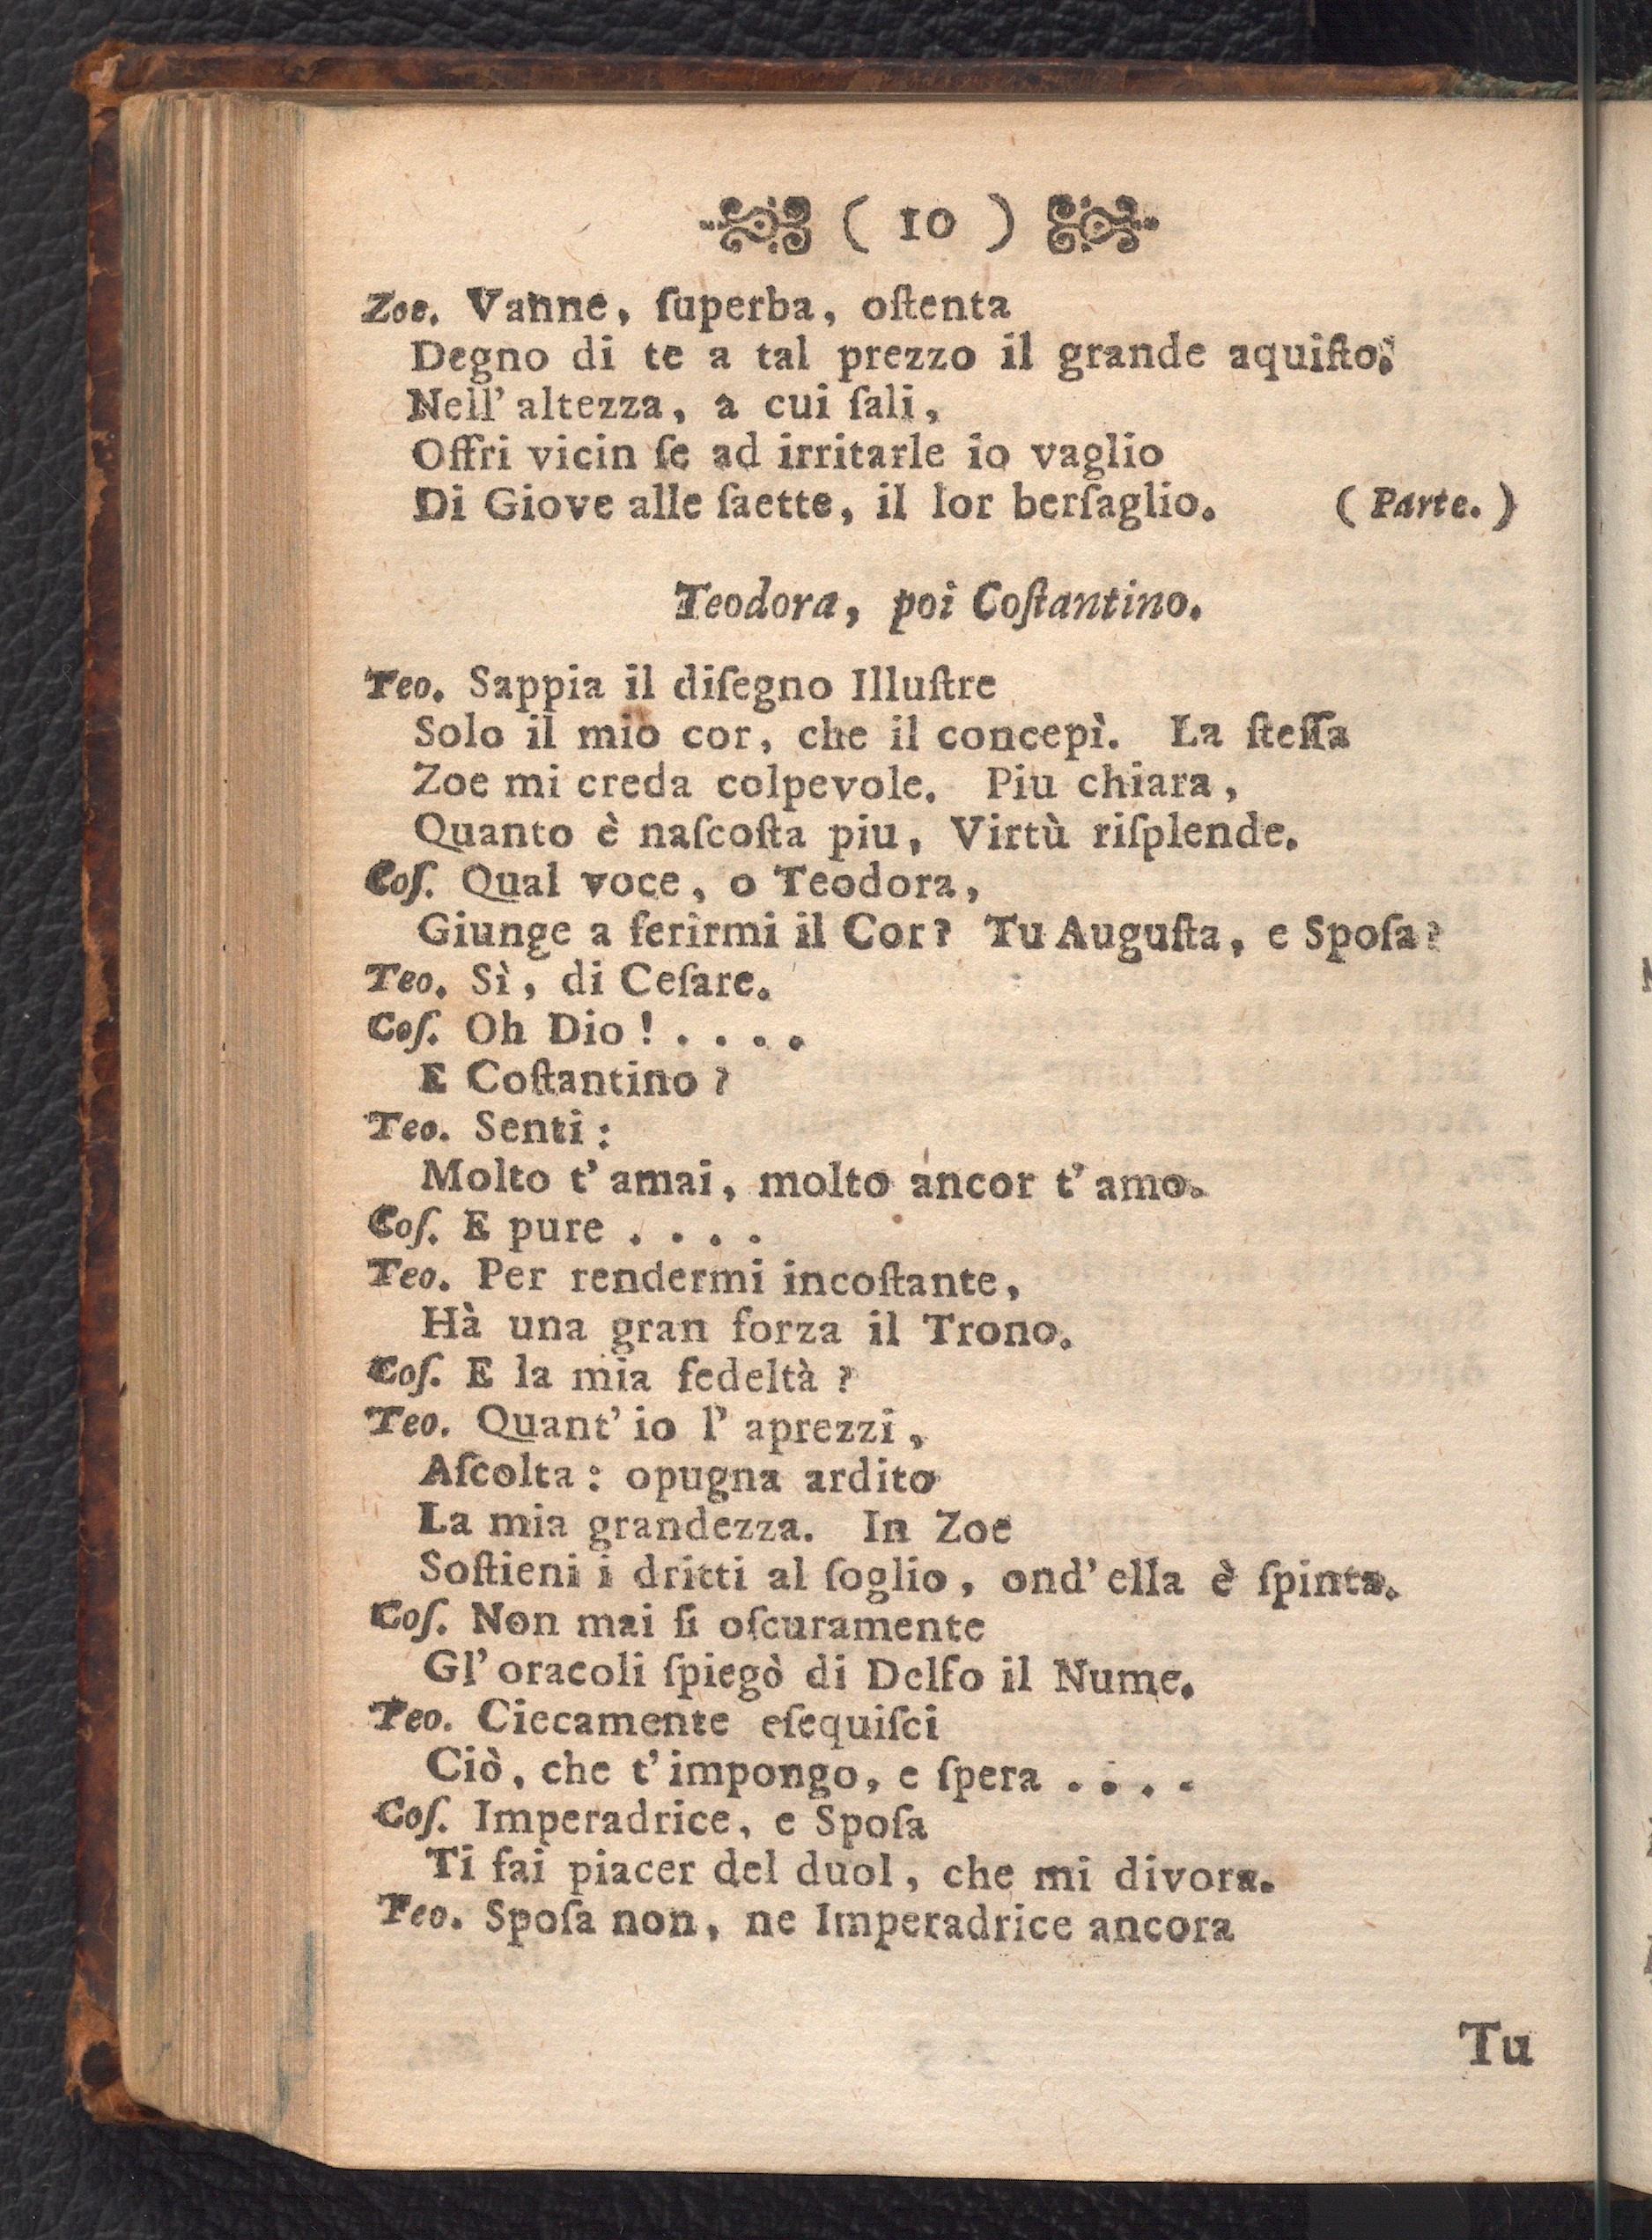 ( 10 )
Zoe. Vanne, ſuperba, oſtenta
Degno di te a tal prezzo il grande aquiſto.
Nell' altezza, a cui ſali,
Offri vicin ſe ad irritarle io vaglio
Di Giove alle ſaette, il lor berſaglio. ( Parte. )
Teodora, poi Coſtantino.
Teo. Sappia il diſegno Illuſtre
Solo il mio cor, che il concepì. La ſteſſa
Zoe mi creda colpevole. Piu chiara,
Quanto è naſcoſta piu, Virtù riſplende.
Coſ. Qual voce, o Teodora,
Giunge a ferirmi il Cor? Tu Auguſta, e Spoſa?
Teo. Sì, di Ceſare.
Coſ. Oh Dio! . . . .
E Coſtantino?
Teo. Senti:
Molto t' amai, molto ancor t' amo.
Coſ. E pure . . . .
Teo. Per rendermi incoſtante,
Hà una gran forza il Trono.
Coſ. E la mia fedeltà?
Teo. Quant' io l' aprezzi,
Aſcolta: opugna ardito
La mia grandezza. In Zoe
Soſtieni i dritti al ſoglio, ond' ella è ſpinta.
Coſ. Non mai ſi oſcuramente
Gl' oracoli ſpiegò di Delfo il Nume.
Teo. Ciecamente eſequiſci
Ciò, che t' impongo, e ſpera . . . .
Coſ. Imperadrice, e Spoſa
Ti fai piacer del duol, che mi divora.
Teo. Spoſa non, ne Imperadrice ancora
Tu